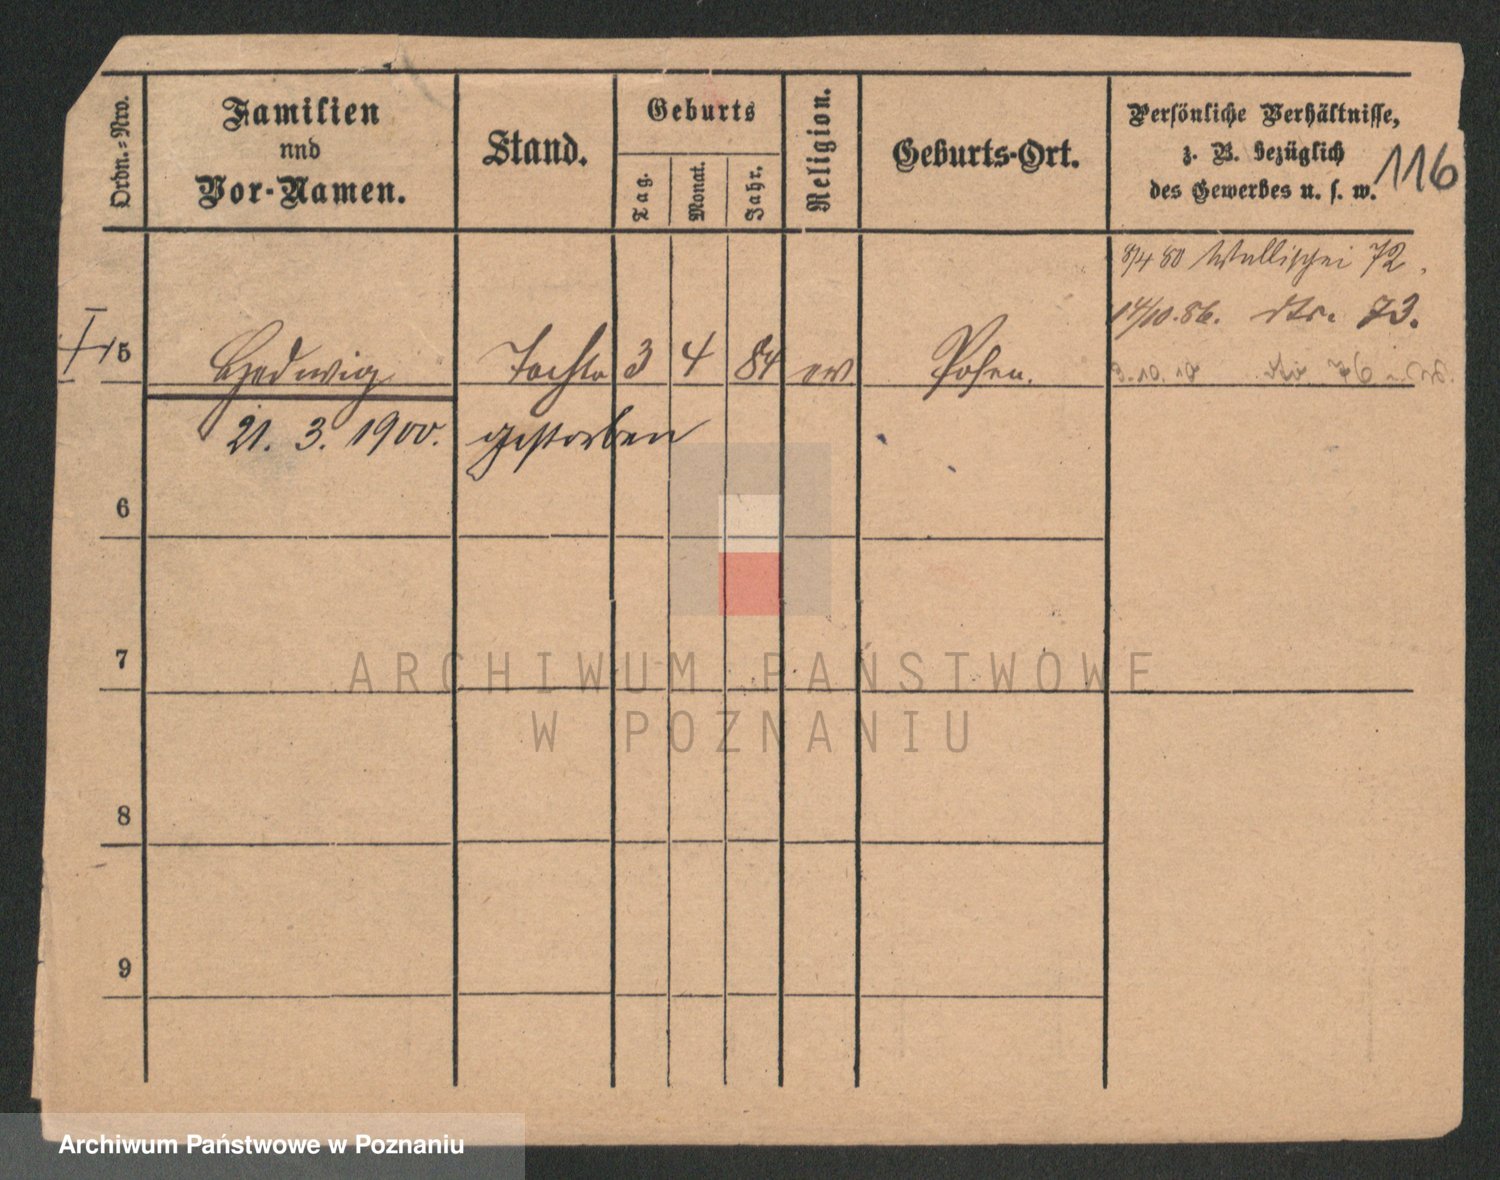 Ordn.-Nro.
Familien
und
Vor-Namen.
Stand.
Geburts
Tag.
Monat.
Jahr.
Religion.
Geburts-Ort.
Persönliche Verhältnisse,
z. B. bezüglich
des Gewerbes u. s. w.
116
8/4 80 Wallischei 72.
14/10.86. dto. 73.
5 Hedwig Tochter 3 4 84 ev Posen.
21. 3. 1900. gestorben
6
7
8
9
ARCHIWUM PAŃSTWOWE
W POZNANIU
Archiwum Państwowe w Poznaniu